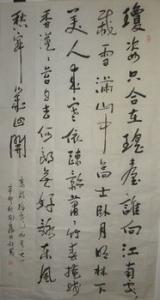 瓊姿只合在瑤臺誰向江南處々
栽雪滿山中高士臥月明林下
美人来寒依疏影蕭々竹春掩殘
香漠々苔自去何郎無好詠東風
愁寂幾回開